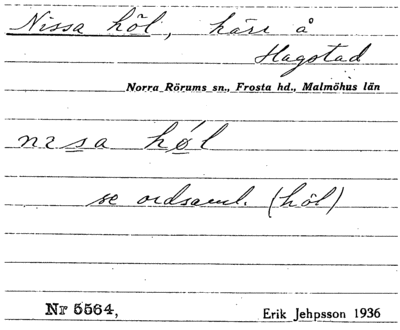 Nissa höl, kärr å
Hagstad
Norra Rörums sn., Frosta hd., Malmöhus län
nɪsa høl
se ordsaml. (höl)
Nr 5564,
Erik Jehpsson 1936